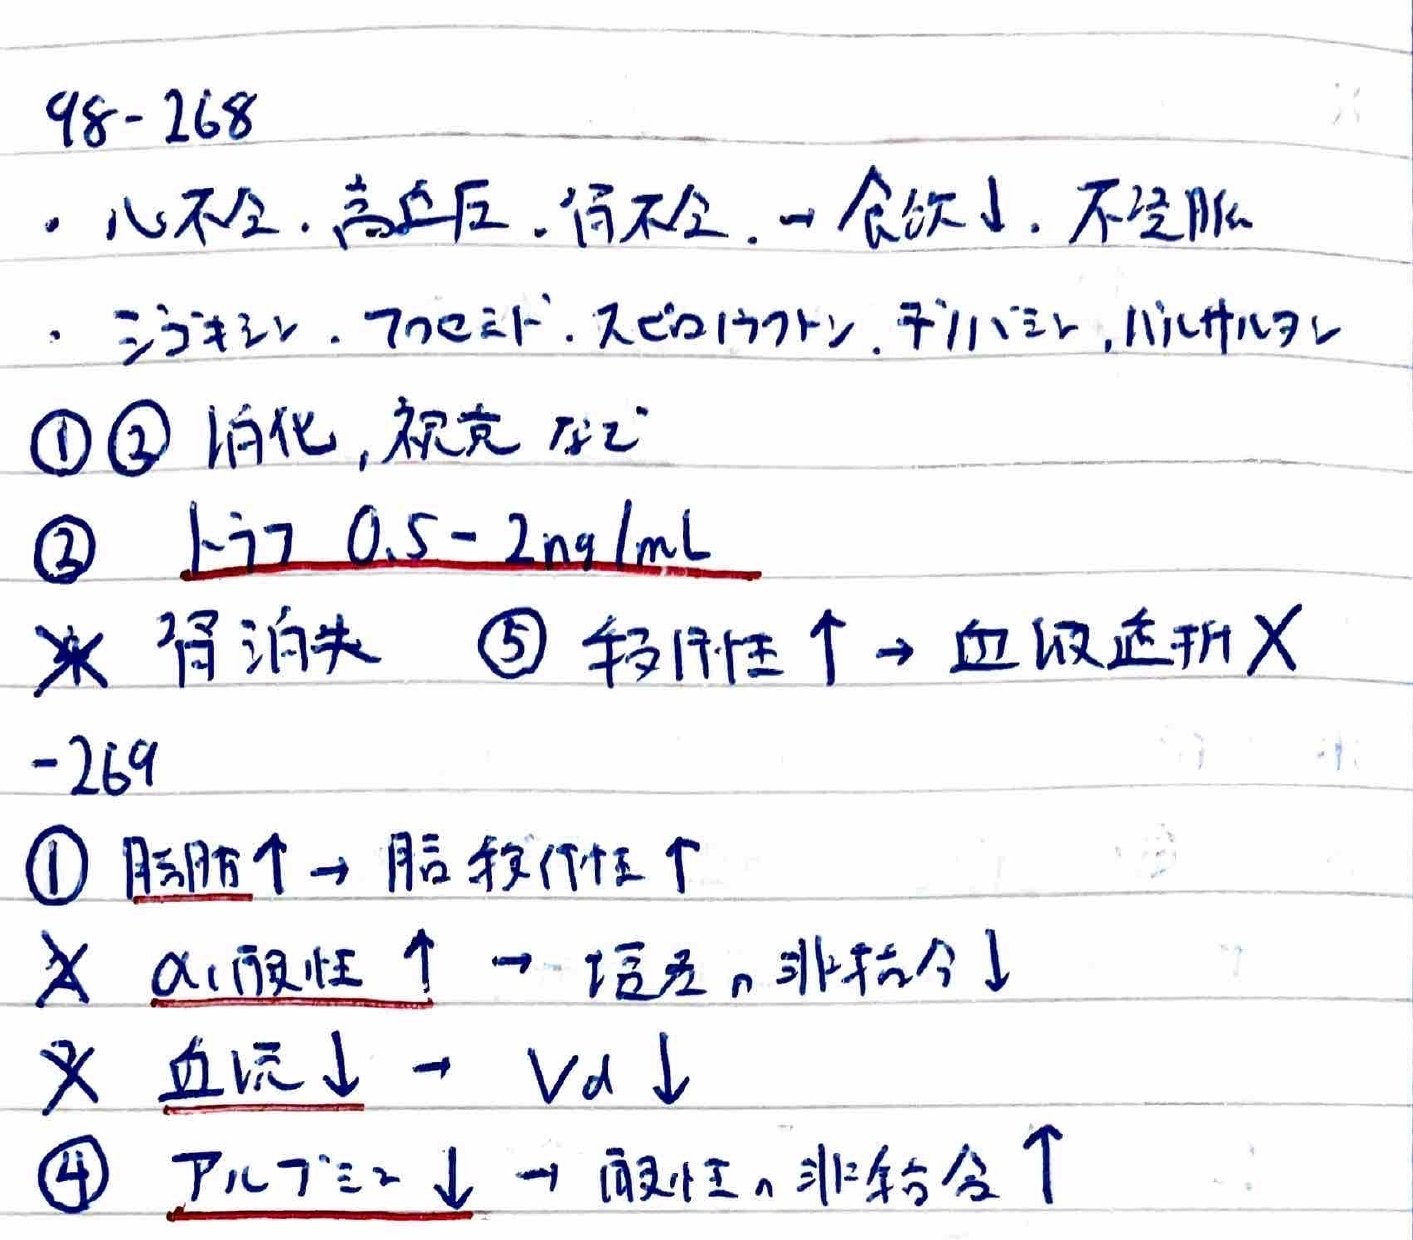 98-268
・心不全.高血圧.腎不全.→食欲↓.不整脈
・ジゴキシン.フロセミド.スピロノラクトン.ジルチアゼム,バルサルタン
①② 消化,視覚 など
③ トラフ 0.5-2ng/mL
✗ 腎消失 ⑤ 移行性↑→血液透析✗
-269
① 脂肪↑→脂移行性↑
✗ α₁酸性↑→塩基の非結合↓
✗ 血流↓→Vd↓
④ アルブミン↓→酸性の非結合↑